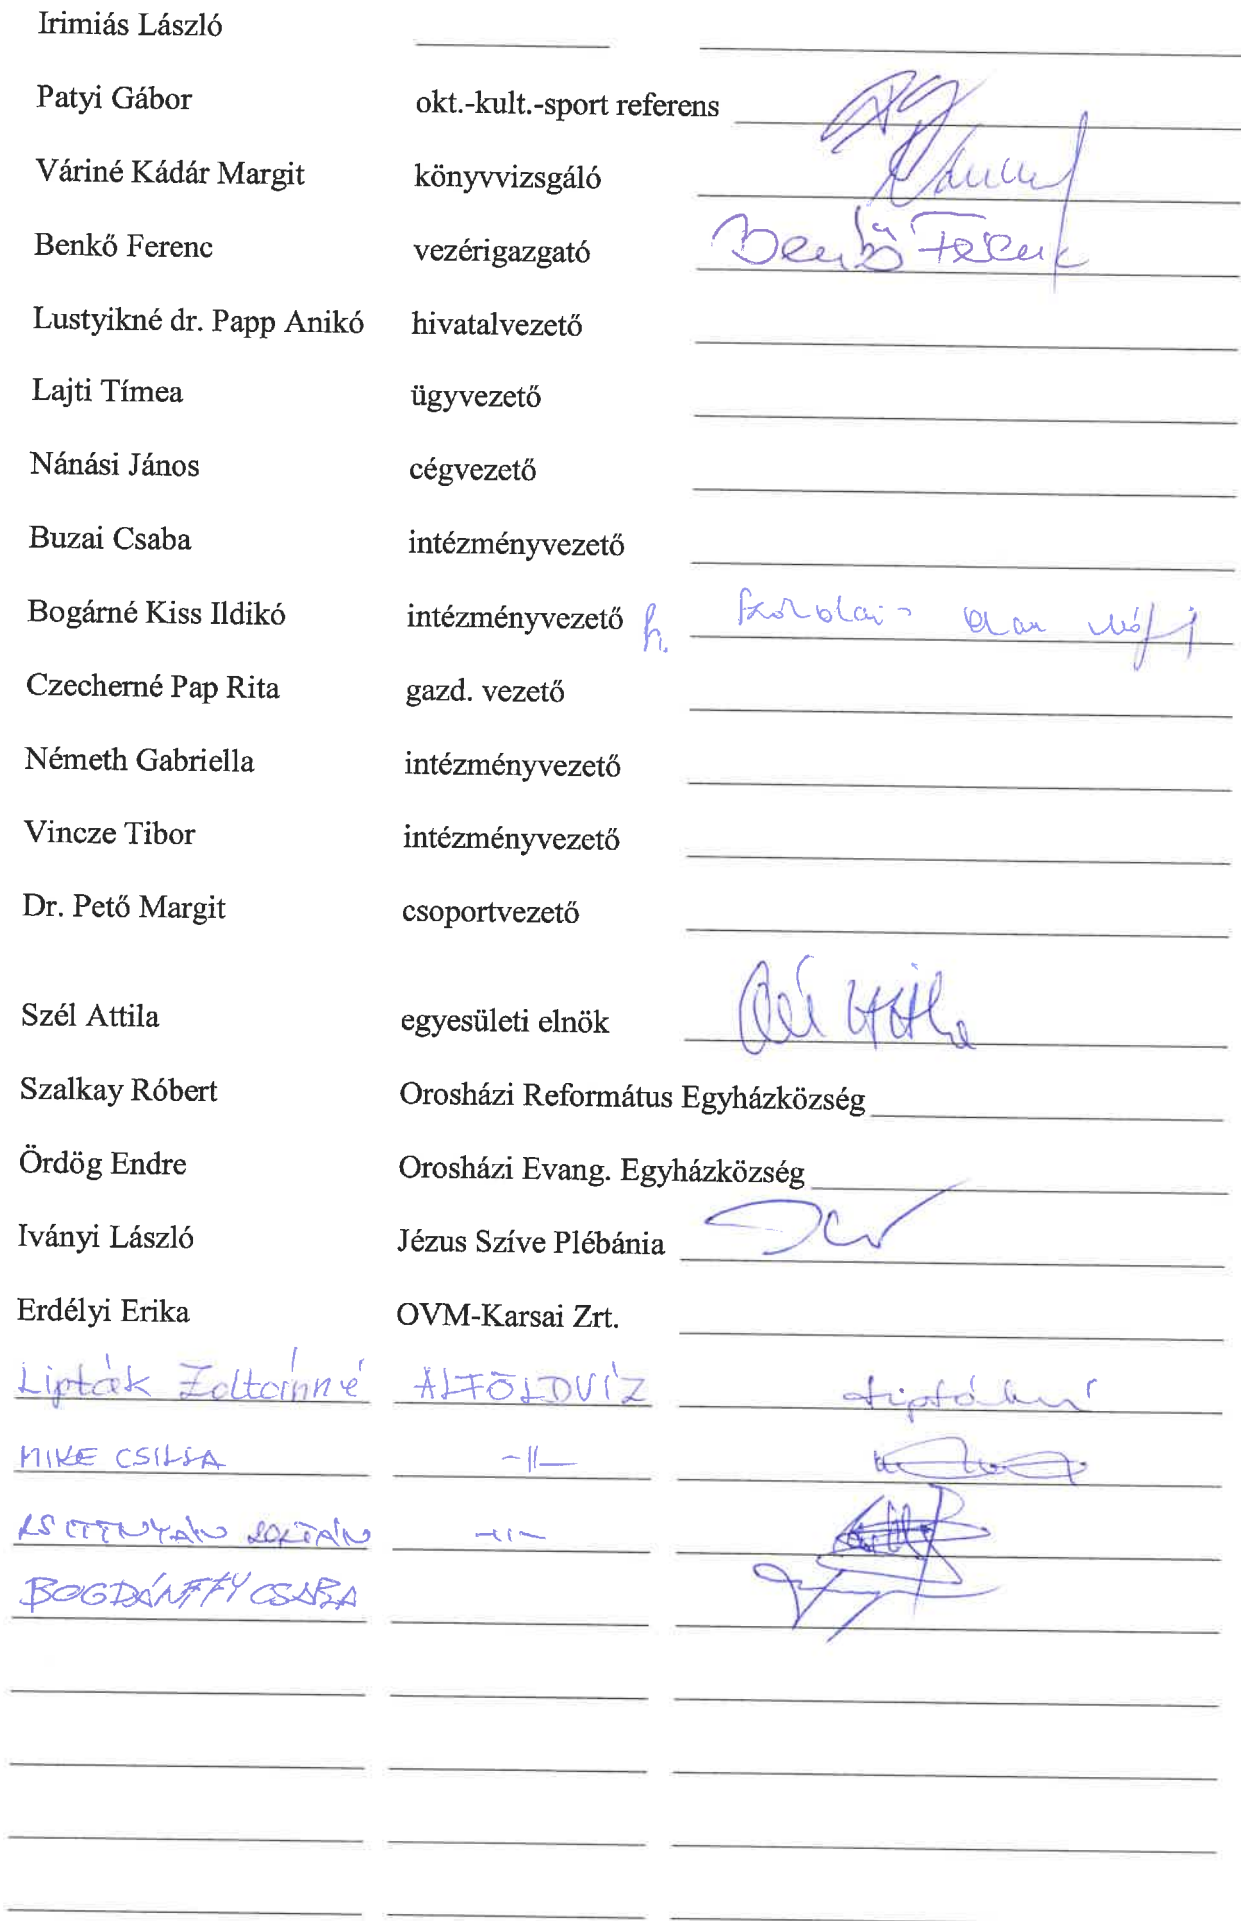 Irimiás László
Patyi Gábor okt.-kult.-sport referens
Váriné Kádár Margit könyvvizsgáló
Benkő Ferenc vezérigazgató Benkő Ferenc
Lustyikné dr. Papp Anikó hivatalvezető
Lajti Tímea ügyvezető
Nánási János cégvezető
Buzai Csaba intézményvezető
Bogárné Kiss Ildikó intézményvezető h.
Czecherné Pap Rita gazd. vezető
Németh Gabriella intézményvezető
Vincze Tibor intézményvezető
Dr. Pető Margit csoportvezető
Szél Attila egyesületi elnök
Szalkay Róbert Orosházi Református Egyházközség
Ördög Endre Orosházi Evang. Egyházközség
Iványi László Jézus Szíve Plébánia
Erdélyi Erika OVM-Karsai Zrt.
Lipták Zoltánné ALFÖLDVÍZ Liptákné
MIKE CSILLA -||-
ZOLTÁN -||-
BOGDÁNFFY CSABA